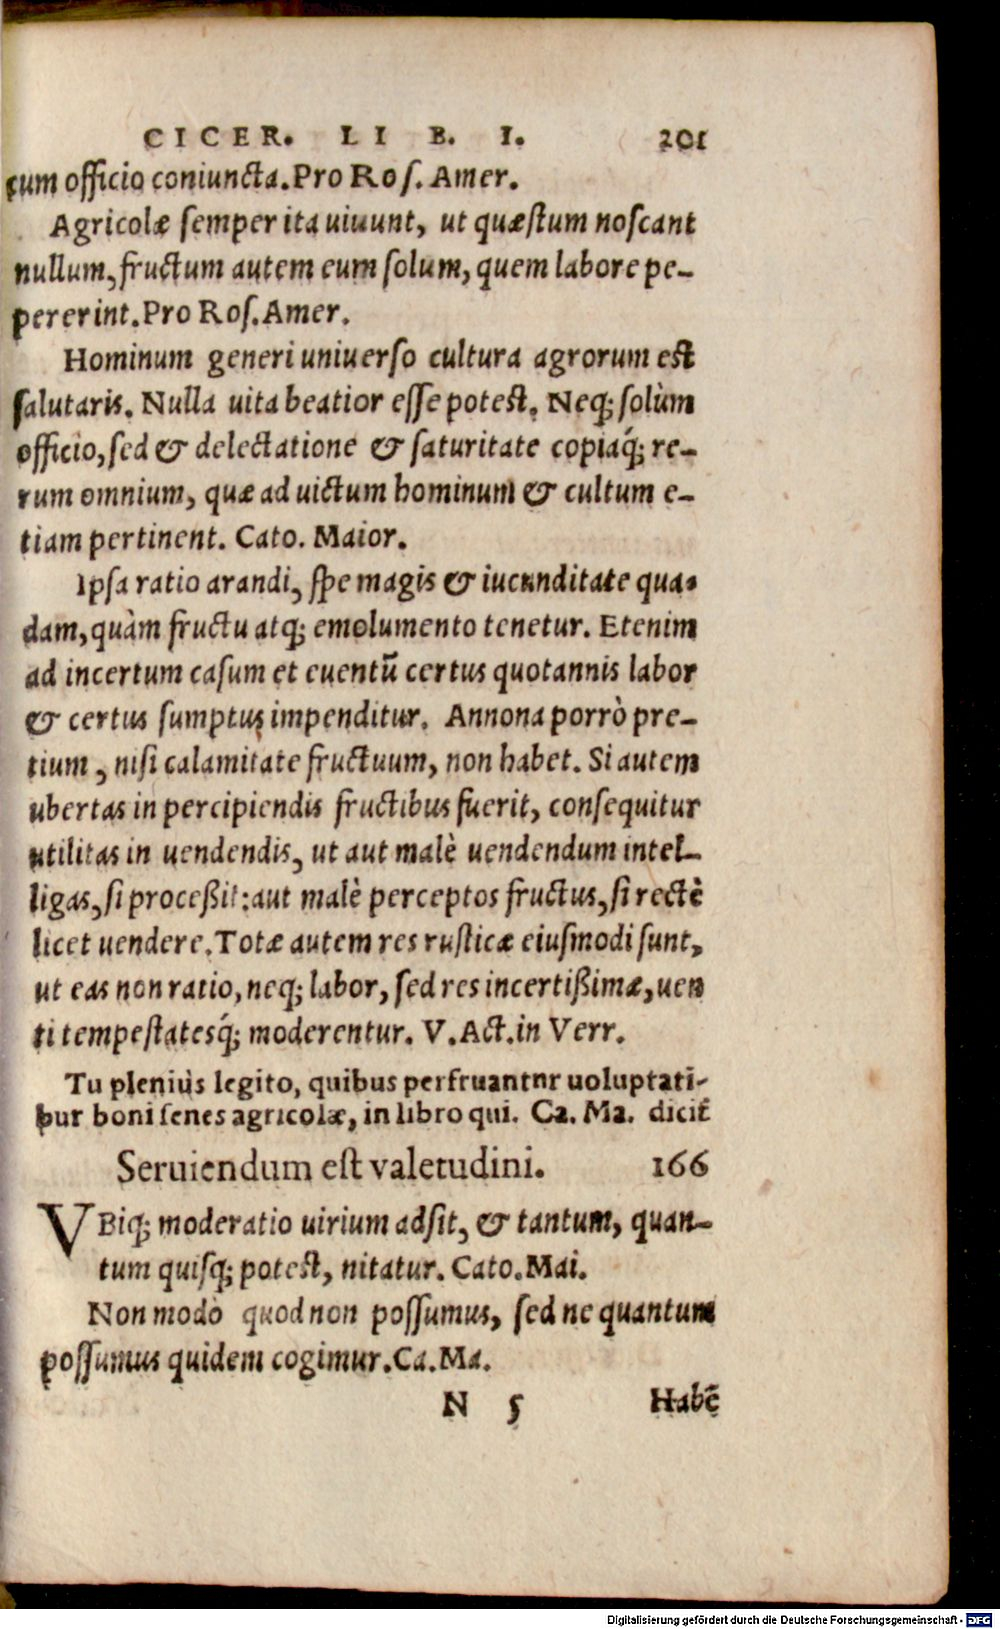 CICER. LIB. I. 201
cum officio coniuncta. Pro Ros. Amer.
Agricolæ semper ita uiuunt, ut quæstum noscant
nullum, fructum autem eum solum, quem labore pe-
pererint. Pro Ros. Amer.
Hominum generi uniuerso cultura agrorum est
salutaris. Nulla uita beatior esse potest. Neq; solùm
officio, sed & delectatione & saturitate copiaq́; re-
rum omnium, quæ ad uictum hominum & cultum e-
tiam pertinent. Cato. Maior.
Ipsa ratio arandi, spe magis & iucunditate qua-
dam, quàm fructu atq; emolumento tenetur. Etenim
ad incertum casum et euentũ certus quotannis labor
& certus sumptus impenditur. Annona porrò pre-
tium, nisi calamitate fructuum, non habet. Si autem
ubertas in percipiendis fructibus fuerit, consequitur
utilitas in uendendis, ut aut malè uendendum intel-
ligas, si proceßit: aut malè perceptos fructus, si rectè
licet uendere. Totæ autem res rusticæ eiusmodi sunt,
ut eas non ratio, neq; labor, sed res incertißimæ, uen
ti tempestatesq́; moderentur. V. Act. in Verr.
Tu pleniùs legito, quibus perfruantnr uoluptati-
bur boni senes agricolæ, in libro qui. Ca. Ma. dicit̃
Seruiendum est valetudini. 166
VBiq; moderatio uirium adsit, & tantum, quan-
tum quisq; potest, nitatur. Cato. Mai.
Non modò quod non possumus, sed ne quantum
possumus quidem cogimur. Ca. Ma.
N 5 Habẽ
Digitalisierung gefördert durch die Deutsche Forschungsgemeinschaft - DFG